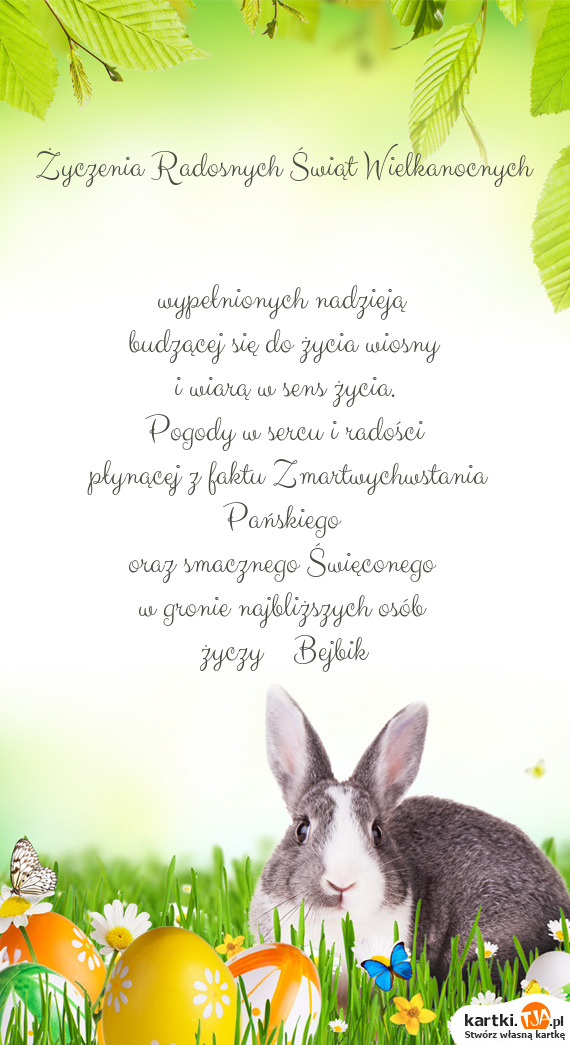 Życzenia Radosnych Świąt Wielkanocnych
wypełnionych nadzieją
budzącej się do życia wiosny
i wiarą w sens życia.
Pogody w sercu i radości
płynącej z faktu Zmartwychwstania
Pańskiego
oraz smacznego Święconego
w gronie najbliższych osób
życzy Bejbik
kartki.TJA.pl
Stwórz własną kartkę